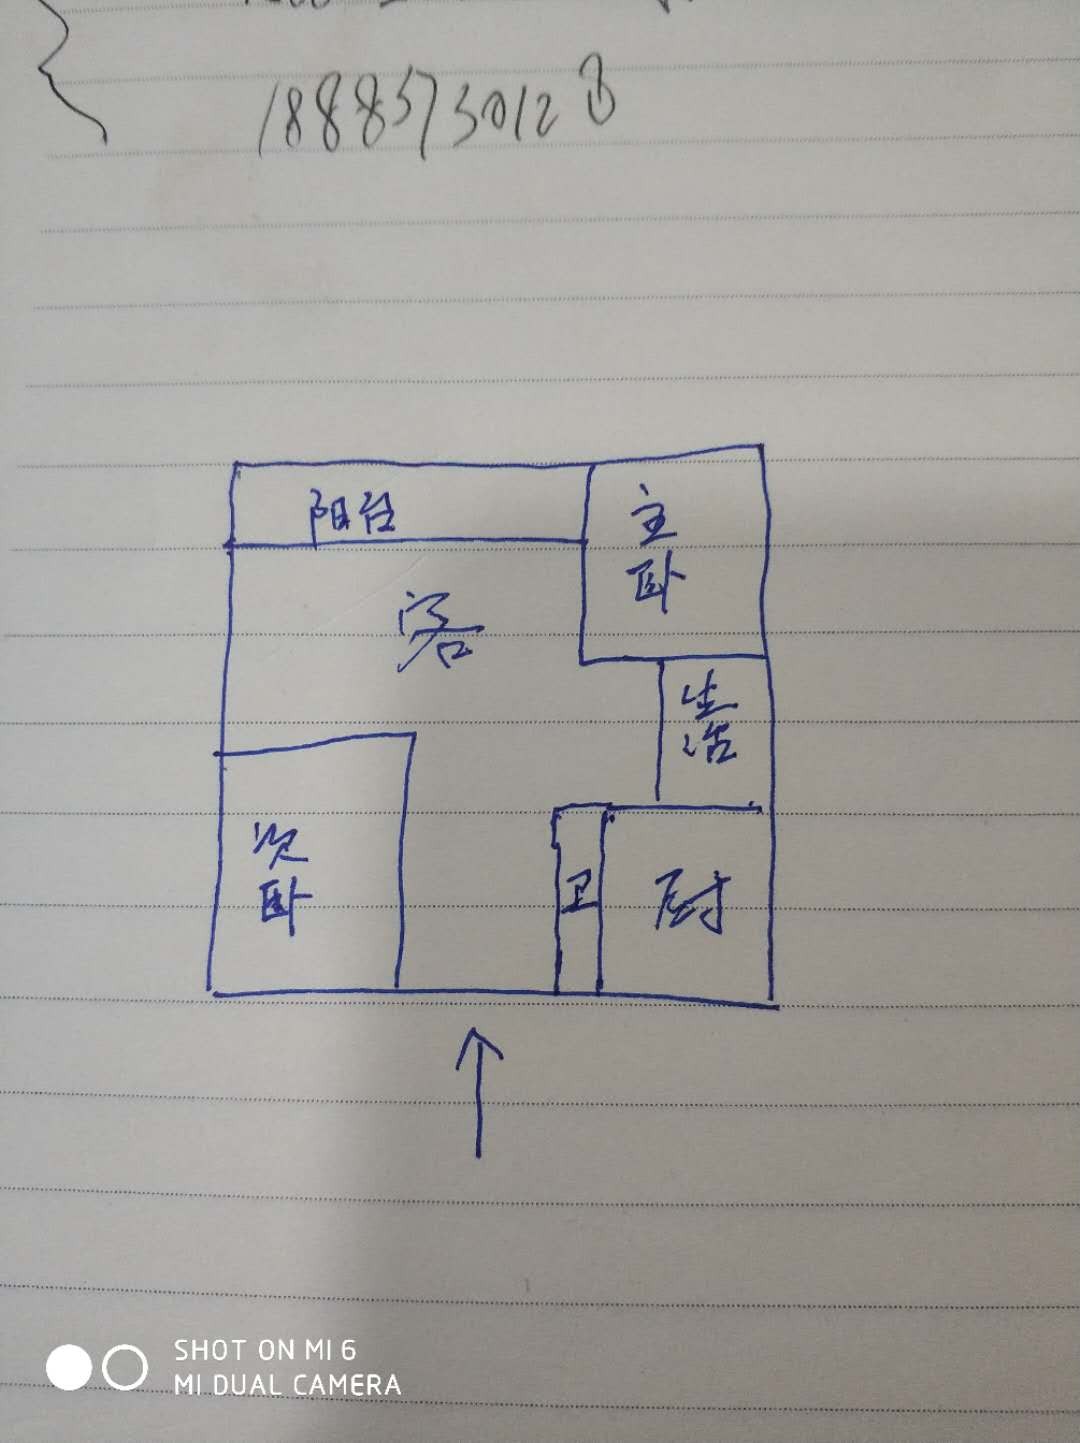 阳台
主卧
客
生活
次卧
卫
厨
SHOT ON MI 6
MI DUAL CAMERA